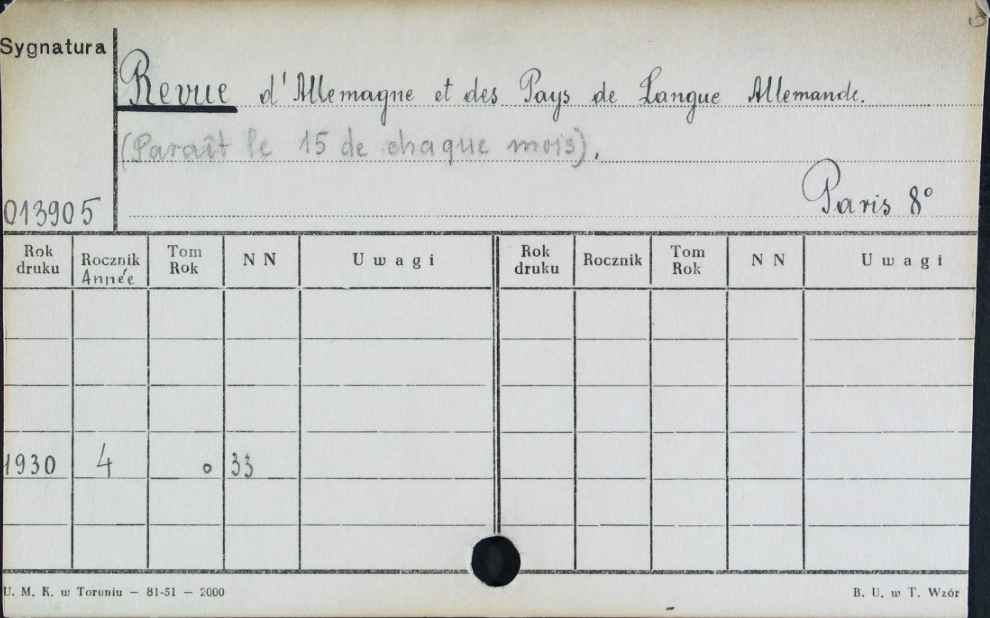 Sygnatura
Revue d'Allemagne et des Pays de Langue Allemande.
(Paraît le 15 de chaque mois).
013905
Paris 8°
Rok druku Rocznik Année Tom Rok N N Uwagi Rok druku Rocznik Tom Rok N N Uwagi
1930 4 o 33
U. M. K. w Toruniu — 81-51 — 2000 B. U. w T. Wzór